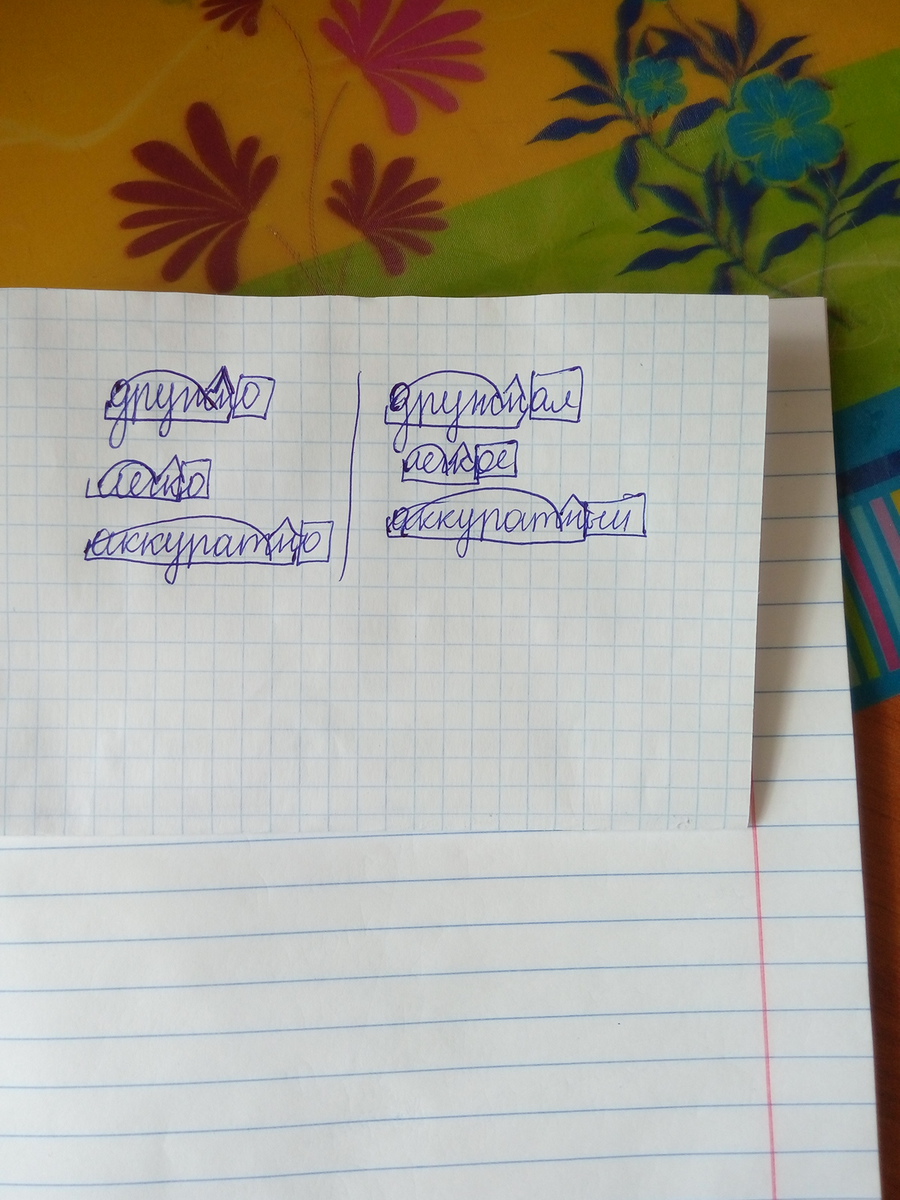 дружно
легко
аккуратно
дружная
легкое
аккуратный